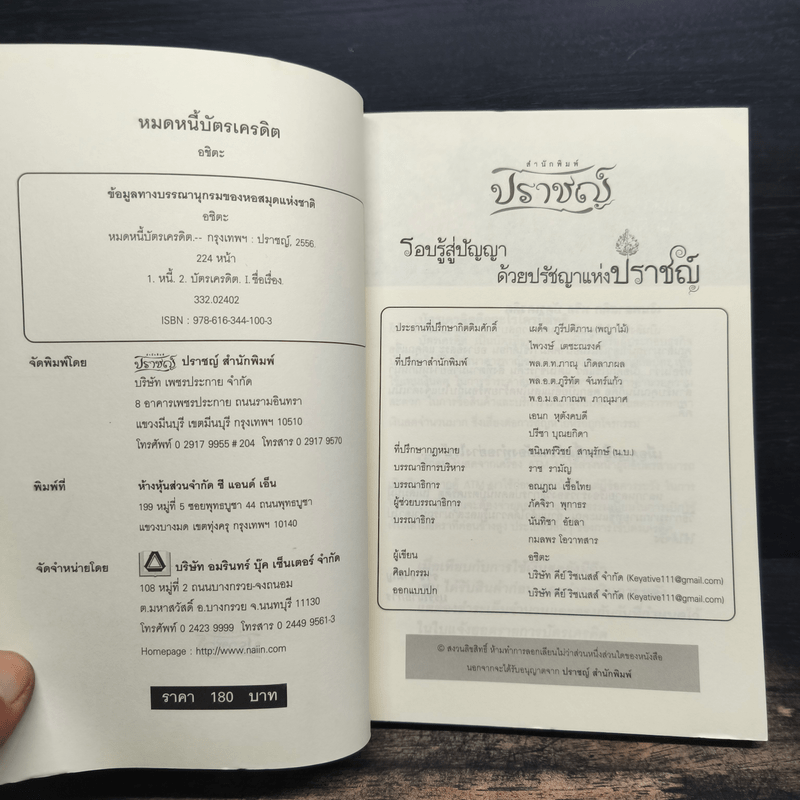 หมดหนี้บัตรเครดิต
อชิตะ
ข้อมูลทางบรรณานุกรมของหอสมุดแห่งชาติ
อชิตะ
หมดหนี้บัตรเครดิต.-- กรุงเทพฯ : ปราชญ์, 2556.
224 หน้า
1. หนี้. 2. บัตรเครดิต. I.ชื่อเรื่อง.
332.02402
ISBN : 978-616-344-100-3
จัดพิมพ์โดย ปราชญ์ ปราชญ์ สำนักพิมพ์
บริษัท เพชรประกาย จำกัด
8 อาคารเพชรประกาย ถนนรามอินทรา
แขวงมีนบุรี เขตมีนบุรี กรุงเทพฯ 10510
โทรศัพท์ 0 2917 9955 # 204 โทรสาร 0 2917 9570
พิมพ์ที่ ห้างหุ้นส่วนจำกัด ซี แอนด์ เอ็น
199 หมู่ที่ 5 ซอยพุทธบูชา 44 ถนนพุทธบูชา
แขวงบางมด เขตทุ่งครุ กรุงเทพฯ 10140
จัดจำหน่ายโดย บริษัท อมรินทร์ บุ๊ค เซ็นเตอร์ จำกัด
108 หมู่ที่ 2 ถนนบางกรวย-จงถนอม
ต.มหาสวัสดิ์ อ.บางกรวย จ.นนทบุรี 11130
โทรศัพท์ 0 2423 9999 โทรสาร 0 2449 9561-3
Homepage : http://www.naiin.com
ราคา 180 บาท
สำนักพิมพ์
ปราชญ์
รอบรู้สู่ปัญญา
ด้วยปรัชญาแห่งปราชญ์
ประธานที่ปรึกษากิตติมศักดิ์ เผด็จ ภูรีปติภาน (พญาไม้)
ไพวงษ์ เตชะณรงค์
ที่ปรึกษาสำนักพิมพ์ พล.ต.ท.ภาณุ เกิดลาภผล
พล.อ.ต.ภูริทัต จันทร์แก้ว
พ.อ.ม.ล.ภาณพ ภาณุมาศ
เอนก หุตังคบดี
ปรีชา บุณยกิดา
ที่ปรึกษากฎหมาย ชนินทร์วิชย์ สานุรักษ์ (น.บ.)
บรรณาธิการบริหาร ราช รามัญ
บรรณาธิการ อณฏณ เชื้อไทย
ผู้ช่วยบรรณาธิการ ภัคจิรา พุกาธร
บรรณาธิกร นันทิชา อัยลา
กมลพร โอวาทสาร
ผู้เขียน อชิตะ
ศิลปกรรม บริษัท คีย์ ริชเนสส์ จำกัด (Keyative111@gmail.com)
ออกแบบปก บริษัท คีย์ ริชเนสส์ จำกัด (Keyative111@gmail.com)
© สงวนลิขสิทธิ์ ห้ามทำการลอกเลียนไม่ว่าส่วนหนึ่งส่วนใดของหนังสือ
นอกจากจะได้รับอนุญาตจาก ปราชญ์ สำนักพิมพ์